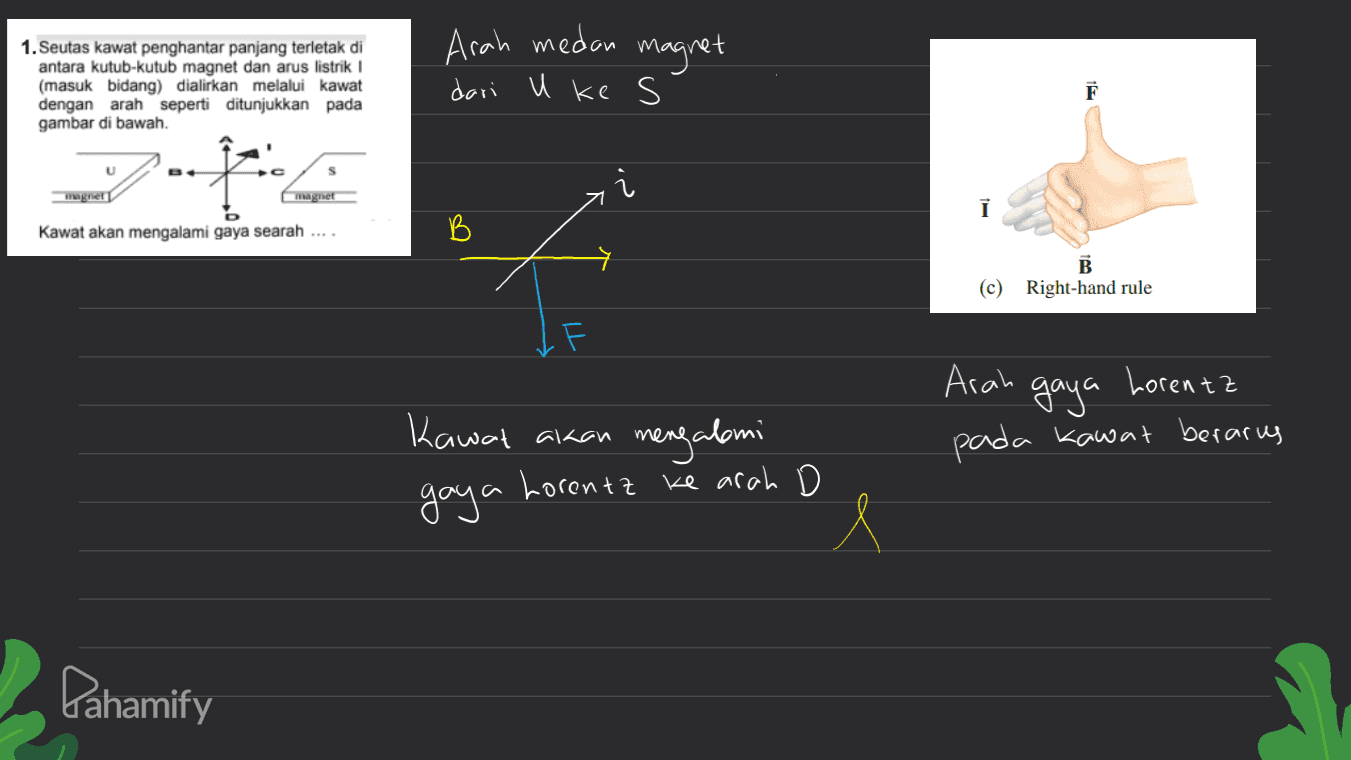 1. Seutas kawat penghantar panjang terletak di
antara kutub-kutub magnet dan arus listrik I
(masuk bidang) dialirkan melalui kawat
dengan arah seperti ditunjukkan pada
gambar di bawah.
A
I
U B C S
magnet magnet
D
Kawat akan mengalami gaya searah ... .
Arah medan magnet
dari U ke S
i
B
F
Kawat akan mengalami
gaya Lorentz ke arah D
F
I
B
(c) Right-hand rule
Arah gaya Lorentz
pada kawat berarus
Pahamify